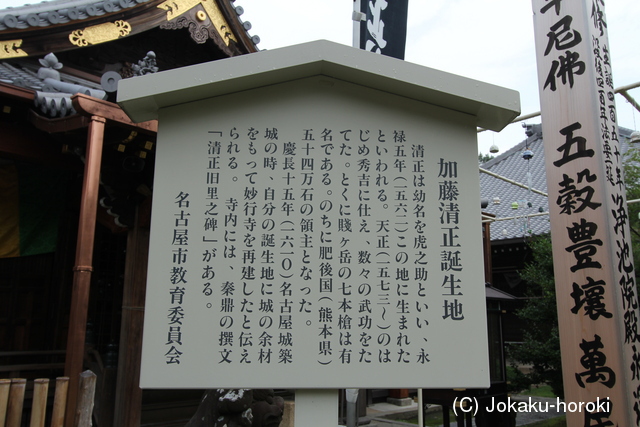 加藤清正誕生地
清正は幼名を虎之助といい、永
禄五年(一五六二)この地に生まれた
といわれる。天正(一五七三〜)のは
じめ秀吉に仕え、数々の武功をた
てた。とくに賤ヶ岳の七本槍は有
名である。のちに肥後国(熊本県)
五十四万石の領主となった。
慶長十五年(一六一〇)名古屋城築
城の時、自分の誕生地に城の余材
をもって妙行寺を再建したと伝え
られる。寺内には、秦鼎の撰文
「清正旧里之碑」がある。
名古屋市教育委員会
牟尼佛 五穀豊壌 萬
浄池院殿
(C) Jokaku-horoki